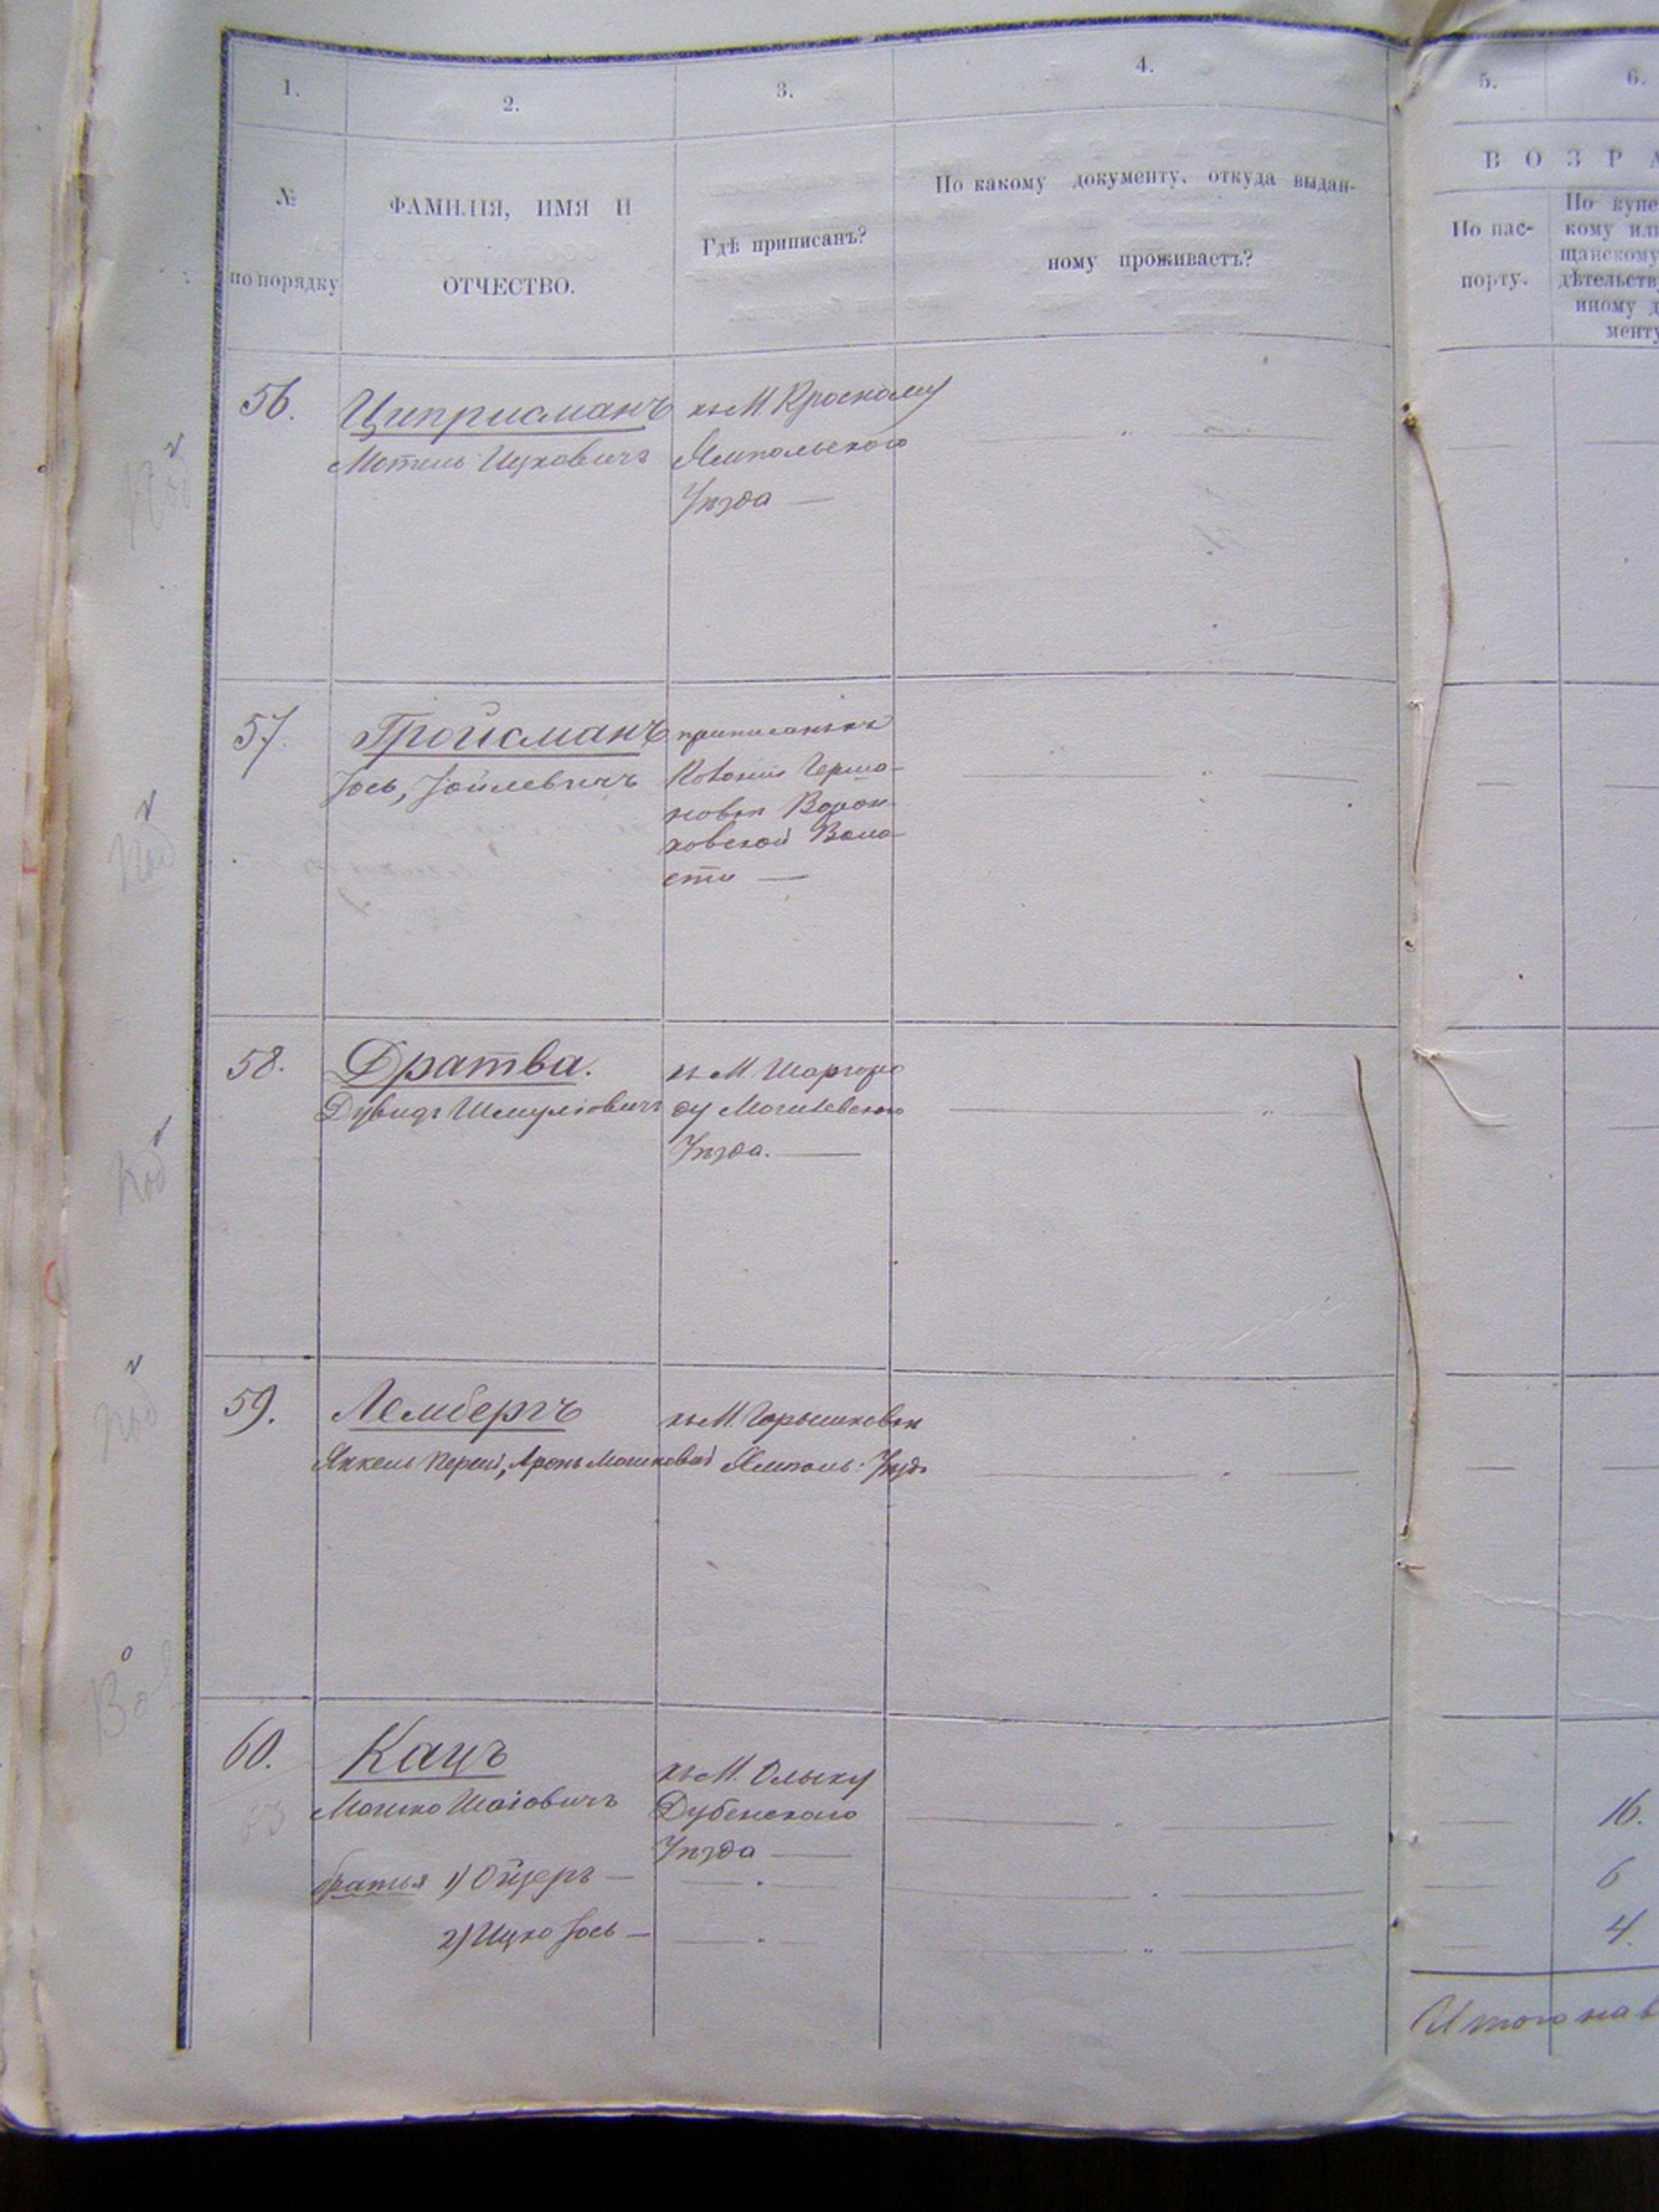 1.
2.
3.
4.
5.
6.
№
по порядку
ФАМИЛІЯ, ИМЯ И
ОТЧЕСТВО.
Гдѣ приписанъ?
По какому документу, откуда выдан-
ному проживаетъ?
ВОЗРА
По пас-
порту.
По купе
кому или
щанскому
дѣтельств
иному д
менту
56.
Циприсманъ
Мотель Ицковичъ
къ М
Ямпольского
Уѣзда —
57.
Гройсманъ
Іось, Іойлевичъ
приписанъ къ
Колоніи
58.
Дратва.
Дувидъ Шмулёвичъ
къ М. Шаргоро
ду Могилевского
Уѣзда. —
59.
Лембергъ
Янкель Перец, Аронъ Мошковой
къ М. Горышковкѣ
Ямполь: Уѣзд.
60.
Кацъ
Мошко Шаіовичъ
къ М. Олыку
Дубенскаго
Уѣзда —
16.
братья 1) Ойзеръ —
6
2) Ицко Іось —
4.
Итого на
Под
Под
Под
Под
Вол